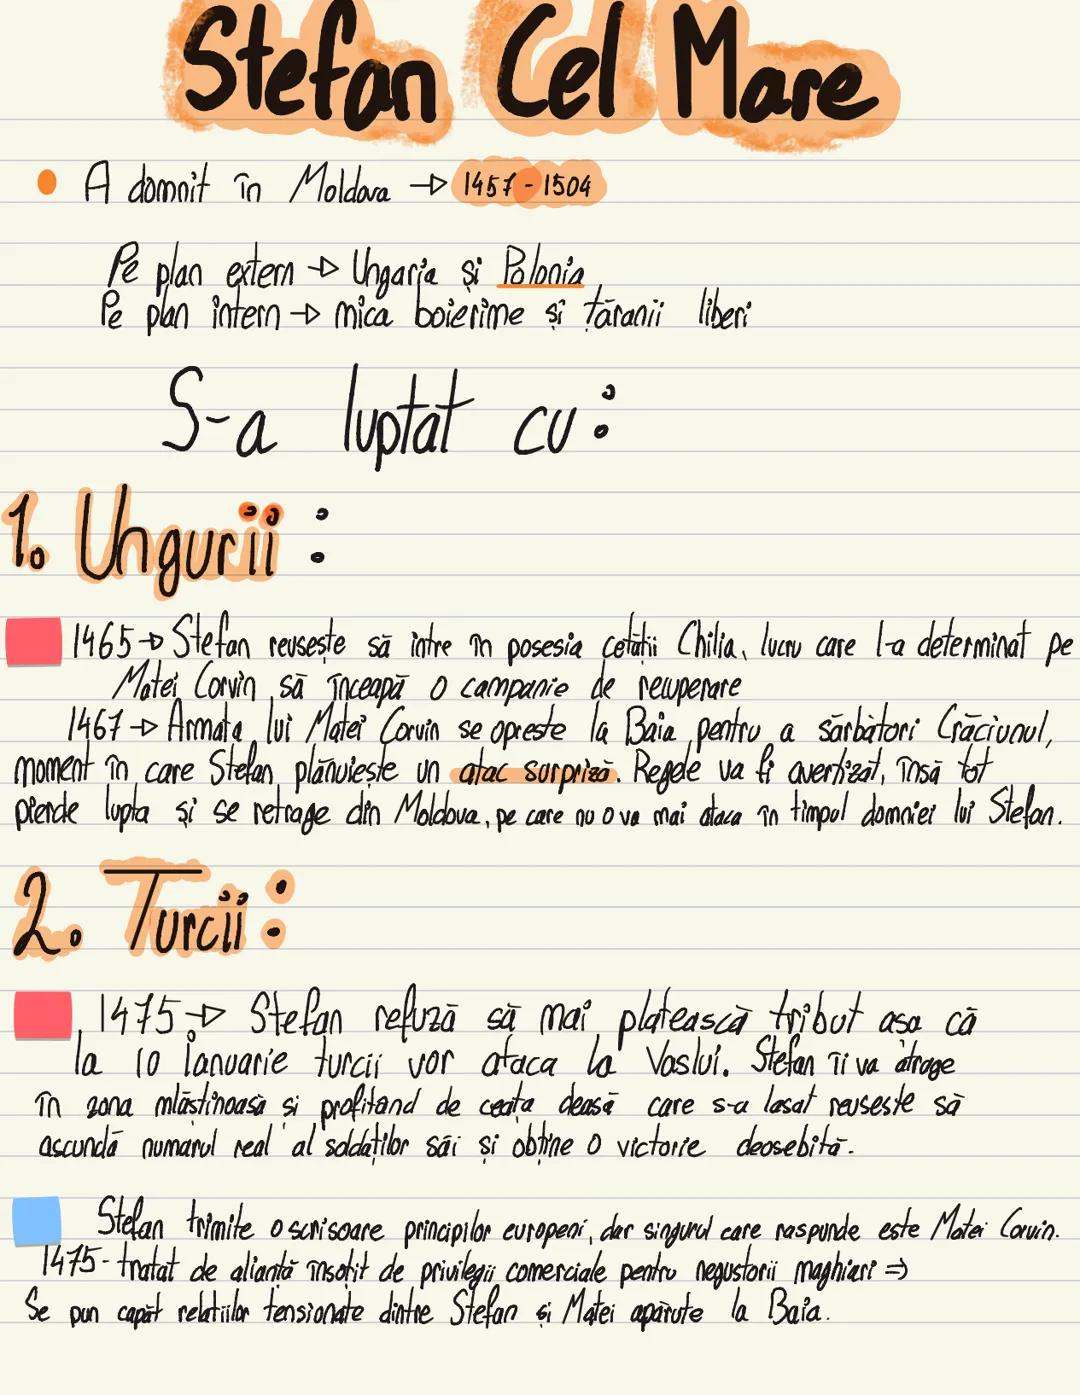 Stefan Cel Mare
A domnit în Moldova → 1457 - 1504
Pe plan extern → Ungaria și Polonia
Pe plan intern → mica boierime și țăranii liberi
S-a luptat cu:
1. Ungurii:
1465 → Stefan reusește să intre în posesia cetății Chilia, lucru care l-a determinat pe
Matei Corvin să înceapă o campanie de recuperare
1467 → Armata lui Matei Corvin se oprește la Baia pentru a sărbători Crăciunul,
moment în care Stefan plănuiește un atac surpriză. Regele va fi avertizat, însă tot
pierde lupta și se retrage din Moldova, pe care nu o va mai ataca în timpul domniei lui Stefan.
2. Turcii:
1475 → Stefan refuză să mai plătească tribut așa că
la 10 ianuarie turcii vor ataca la Vaslui. Stefan îi va atrage
în zona mlăștinoasă și profitând de ceața deasă care s-a lasat reusește să
ascundă numărul real al soldaților săi și obține o victorie deosebită.
Stefan trimite o scrisoare principilor europeni, dar singurul care raspunde este Matei Corvin.
1475 - tratat de alianță însoțit de privilegii comerciale pentru negustorii maghiari ⇒
Se pun capăt relațiilor tensionate dintre Stefan și Matei apărute la Baia.